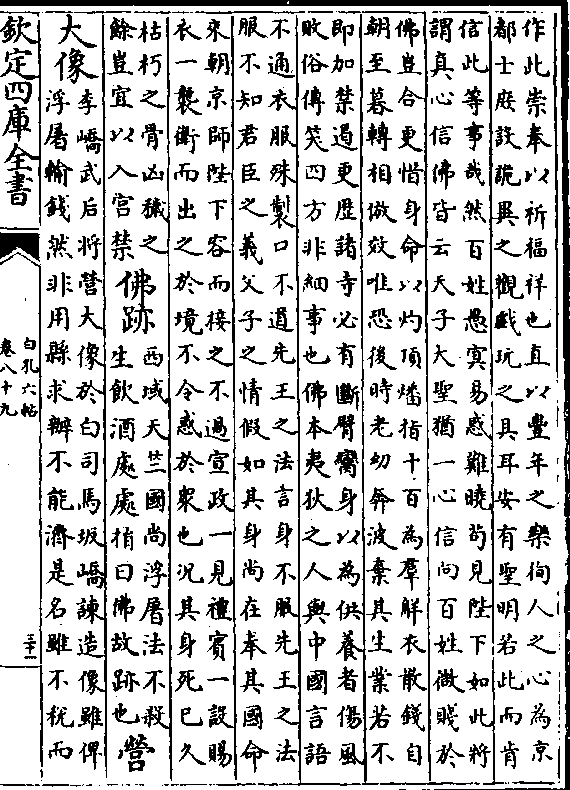 作此崇奉以祈福祥也直以豐年之樂徇人之心為京
都士庶設詭異之觀戲玩之具耳安有聖明若此而肯
信此等事哉然百姓愚冥易惑難曉苟見陛下如此將
謂真心信佛皆云天子大聖猶一心信向百姓微賤於
佛豈合更惜身命以灼頂燔指十百為羣解衣散錢自
朝至暮轉相倣效唯恐後時老幼奔波棄其生業若不
即加禁遏更歷諸寺必有斷臂臠身以為供養者傷風
敗俗傳笑四方非細事也佛本夷狄之人與中國言語
不通衣服殊製口不道先王之法言身不服先王之法
服不知君臣之義父子之情假如其身尚在奉其國命
來朝京師陛下容而接之不過宣政一見禮賓一設賜
衣一襲衛而出之於境不令惑於衆也況其身死已久
枯朽之骨凶穢之
餘豈宜以入宮禁
佛跡
西域天竺國尚浮屠法不殺
生飲酒處處指曰佛故跡也
營
大像
李嶠武后將營大像於白司馬坂嶠諫造像雖俾
浮屠輸錢然非用縣求辦不能濟是名雖不稅而
欽定四庫全書
白孔六帖
卷八十九
三十一